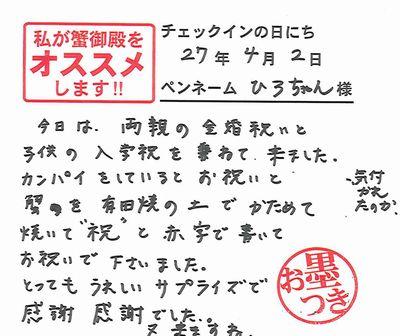 私が蟹御殿を
オススメ
します!!
チェックインの日にち
27年4月2日
ペンネーム ひろちゃん 様
今日は、両親の金婚祝いと
子供の入学祝を兼ねて来ました。
カンパイをしているとお祝いと
蟹を有田焼の土でかためて
焼いて"祝"と赤字で書いて
お祝いで下さいました。
とってもうれしいサプライズで
感謝感謝でした。
又来ますね。
気付
かれ
たのか、
お墨つき